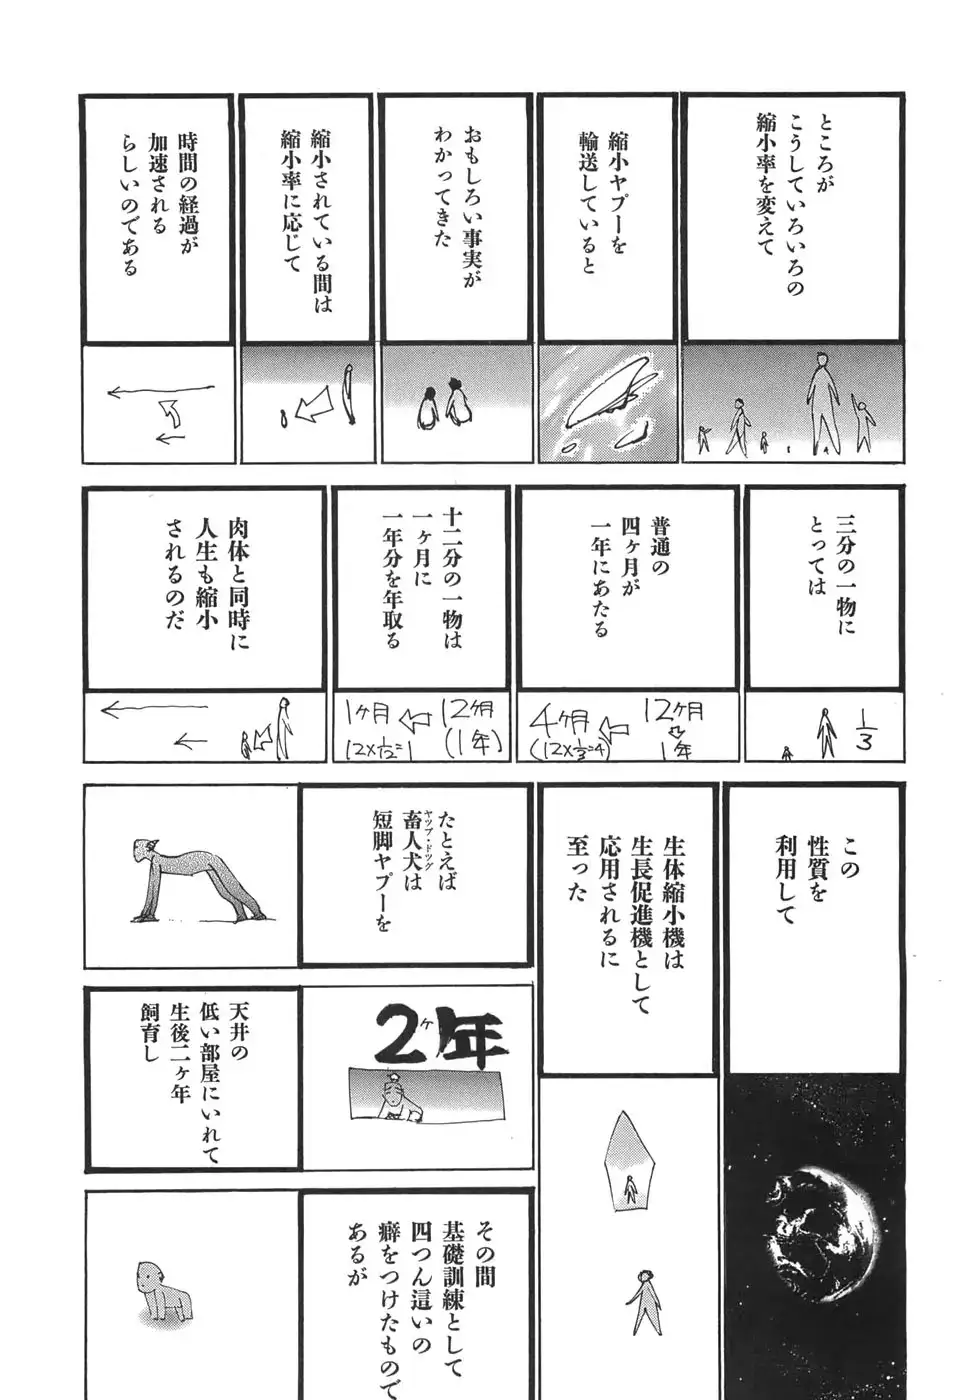 ところが
こうしていろいろの
縮小率を変えて
縮小ヤプーを
輸送していると
おもしろい事実が
わかってきた
縮小されている間は
縮小率に応じて
時間の経過が
加速される
らしいのである
三分の一物に
とっては
1/3
普通の
四ヶ月が
一年にあたる
12ヶ月
1年
4ヶ月
(12×1/3=4)
十二分の一物は
一ヶ月に
一年分を年取る
12ヶ月
(1年)
1ヶ月
12×1/12=1
肉体と同時に
人生も縮小
されるのだ
この
性質を
利用して
生体縮小機は
生長促進機として
応用されるに
至った
たとえば
畜人犬は
ヤップ・ドッグ
短脚ヤプーを
天井の
低い部屋にいれて
生後二ヶ年
飼育し
2ヶ年
その間
基礎訓練として
四つん這いの
癖をつけたもので
あるが